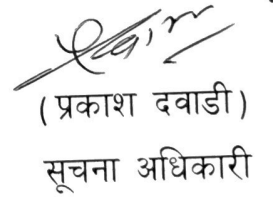 ( प्रकाश दवाडी )
सूचना अधिकारी